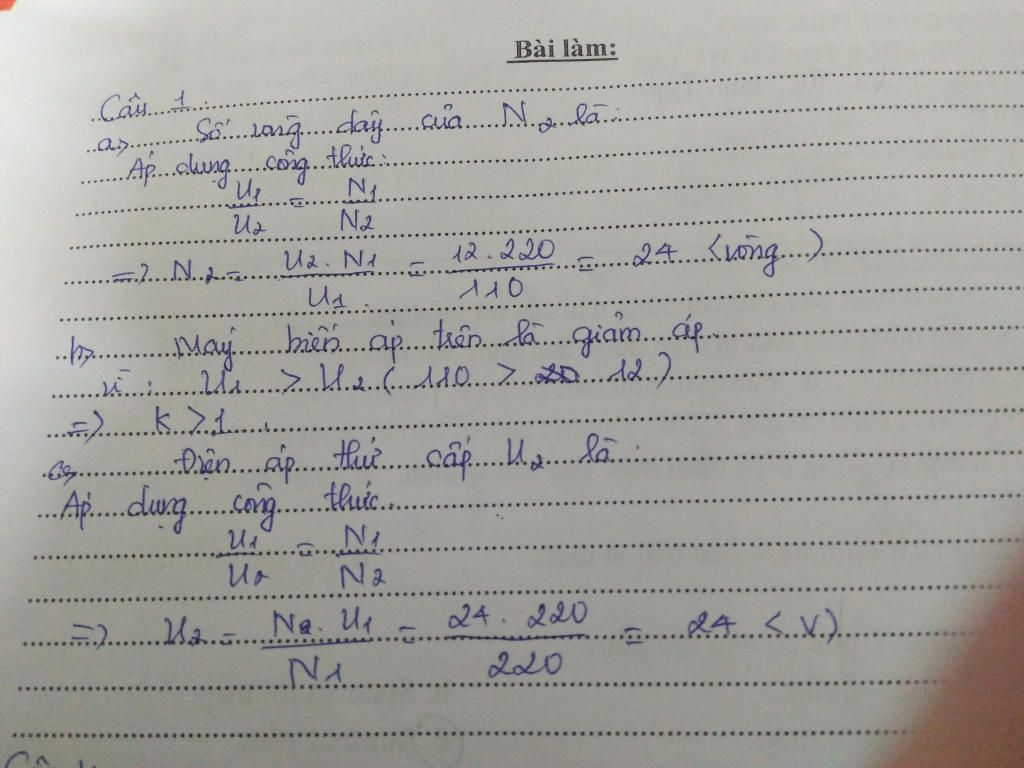 Bài làm:
Câu 1:
a> Số vòng dây của N2 là:
Áp dụng công thức:
U1/U2 = N1/N2
=> N2 = U2.N1/U1 = 12.220/110 = 24 <vòng>
b> Máy biến áp trên là giảm áp
vì: U1 > U2 (110 > 12)
=> K > 1
c> Điện áp thứ cấp U2 là:
Áp dụng công thức
U1/U2 = N1/N2
=> U2 = N2.U1/N1 = 24.220/220 = 24 <V>